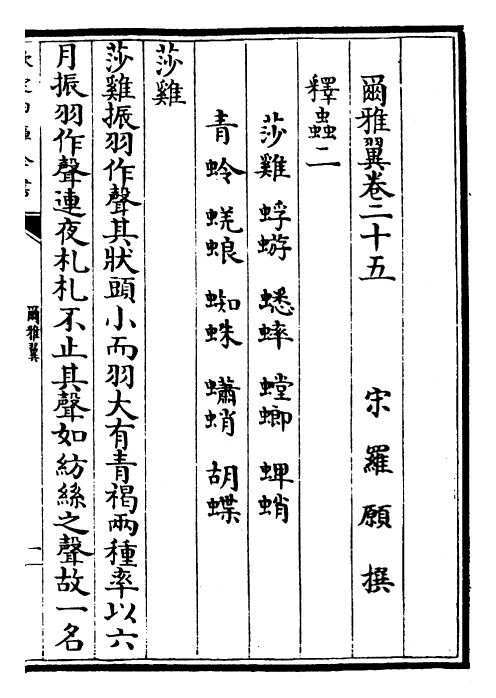 爾雅翼卷二十五
宋 羅 願 撰
釋蟲二
莎雞 蜉蝣 蟋蟀 螳螂 蜱蛸
青蛉 蜣蜋 蜘蛛 蠨蛸 胡蝶
莎雞
莎雞振羽作聲其狀頭小而羽大有青褐兩種率以六
月振羽作聲連夜札札不止其聲如紡絲之聲故一名
爾雅翼
一